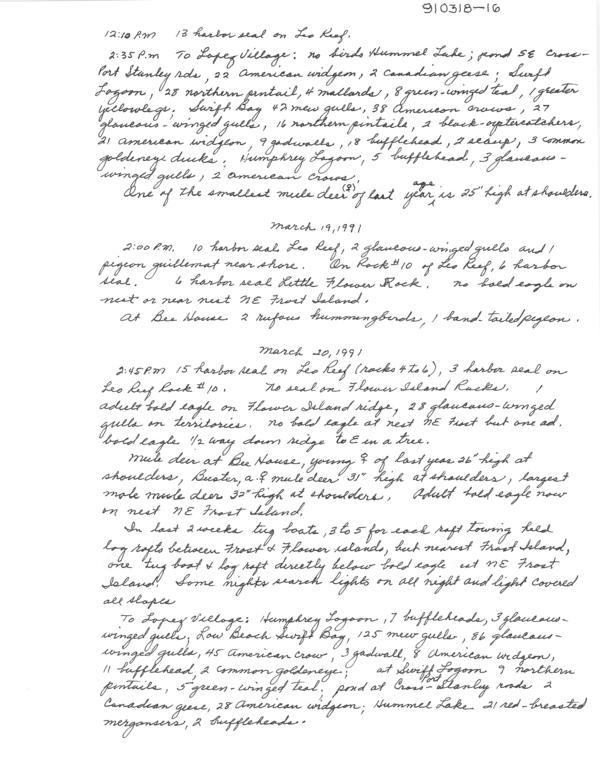 910318-16
12:10 P.M 13 harbor seal on Leo Reef.
2:35 P.m To Lopez Village: no birds Hummel Lake; pond SE Cross-
Port Stanley rds, 22 American widgeon, 2 Canadian geese; Swift
Lagoon, 28 northern pintail, 4 mallards, 8 green-winged teal, 1 greater
yellowlegs. Swift Bay 42 mew gulls, 38 American crows, 27
glaucous-winged gulls, 16 northern pintails, 2 black-oystercatchers,
21 American widgeon, 9 gadwalls, 18 bufflehead, 2 scaup, 3 common
goldeneye ducks. Humphrey Lagoon, 5 bufflehead, 3 glaucous-
winged gulls, 2 American crows.
One of the smallest mule deer (♀) of last year age is 25" high at shoulders.
March 19, 1991
2:00 P.M. 10 harbor seal Leo Reef, 2 glaucous-winged gulls and 1
pigeon guillemot near shore. On Rock #10 of Leo Reef, 6 harbor
seal. 6 harbor seal Little Flower Rock. no bald eagle on
nest or near nest NE Frost Island.
At Bee House 2 rufous hummingbirds, 1 band-tailed pigeon.
March 20, 1991
2:45 P.M 15 harbor seal on Leo Reef (rocks 4 to 6), 3 harbor seal on
Leo Reef Rock #10. no seal on Flower Island Rocks. 1
adult bald eagle on Flower Island ridge, 28 glaucous-winged
gulls on territories. no bald eagle at nest NE Frost but one ad.
bald eagle 1/2 way down ridge to E in a tree.
Mule deer at Bee House, young ♀ of last year 26" high at
shoulders, Buster, a ♀ mule deer 31" high at shoulders, largest
male mule deer 32" high at shoulders. Adult bald eagle now
on nest NE Frost Island.
In last 2 weeks tug boats, 3 to 5 for each raft towing held
log rafts between Frost & Flower islands, but nearest Frost Island,
one tug boat & log raft directly below bald eagle nest NE Frost
Island. Some nights search lights on all night and light covered
all slopes
To Lopez Village: Humphrey Lagoon, 7 buffleheads, 3 glaucous-
winged gulls; Low Beach Swift Bay, 125 mew gulls, 86 glaucous-
winged gulls, 45 American crow, 3 gadwall, 8 American widgeon,
11 bufflehead, 2 common goldeneye; at Swift Lagoon 9 northern
pintails, 5 green-winged teal; pond at Cross-Port Stanley roads 2
Canadian geese, 28 American widgeon; Hummel Lake 21 red-breasted
mergansers, 2 buffleheads.